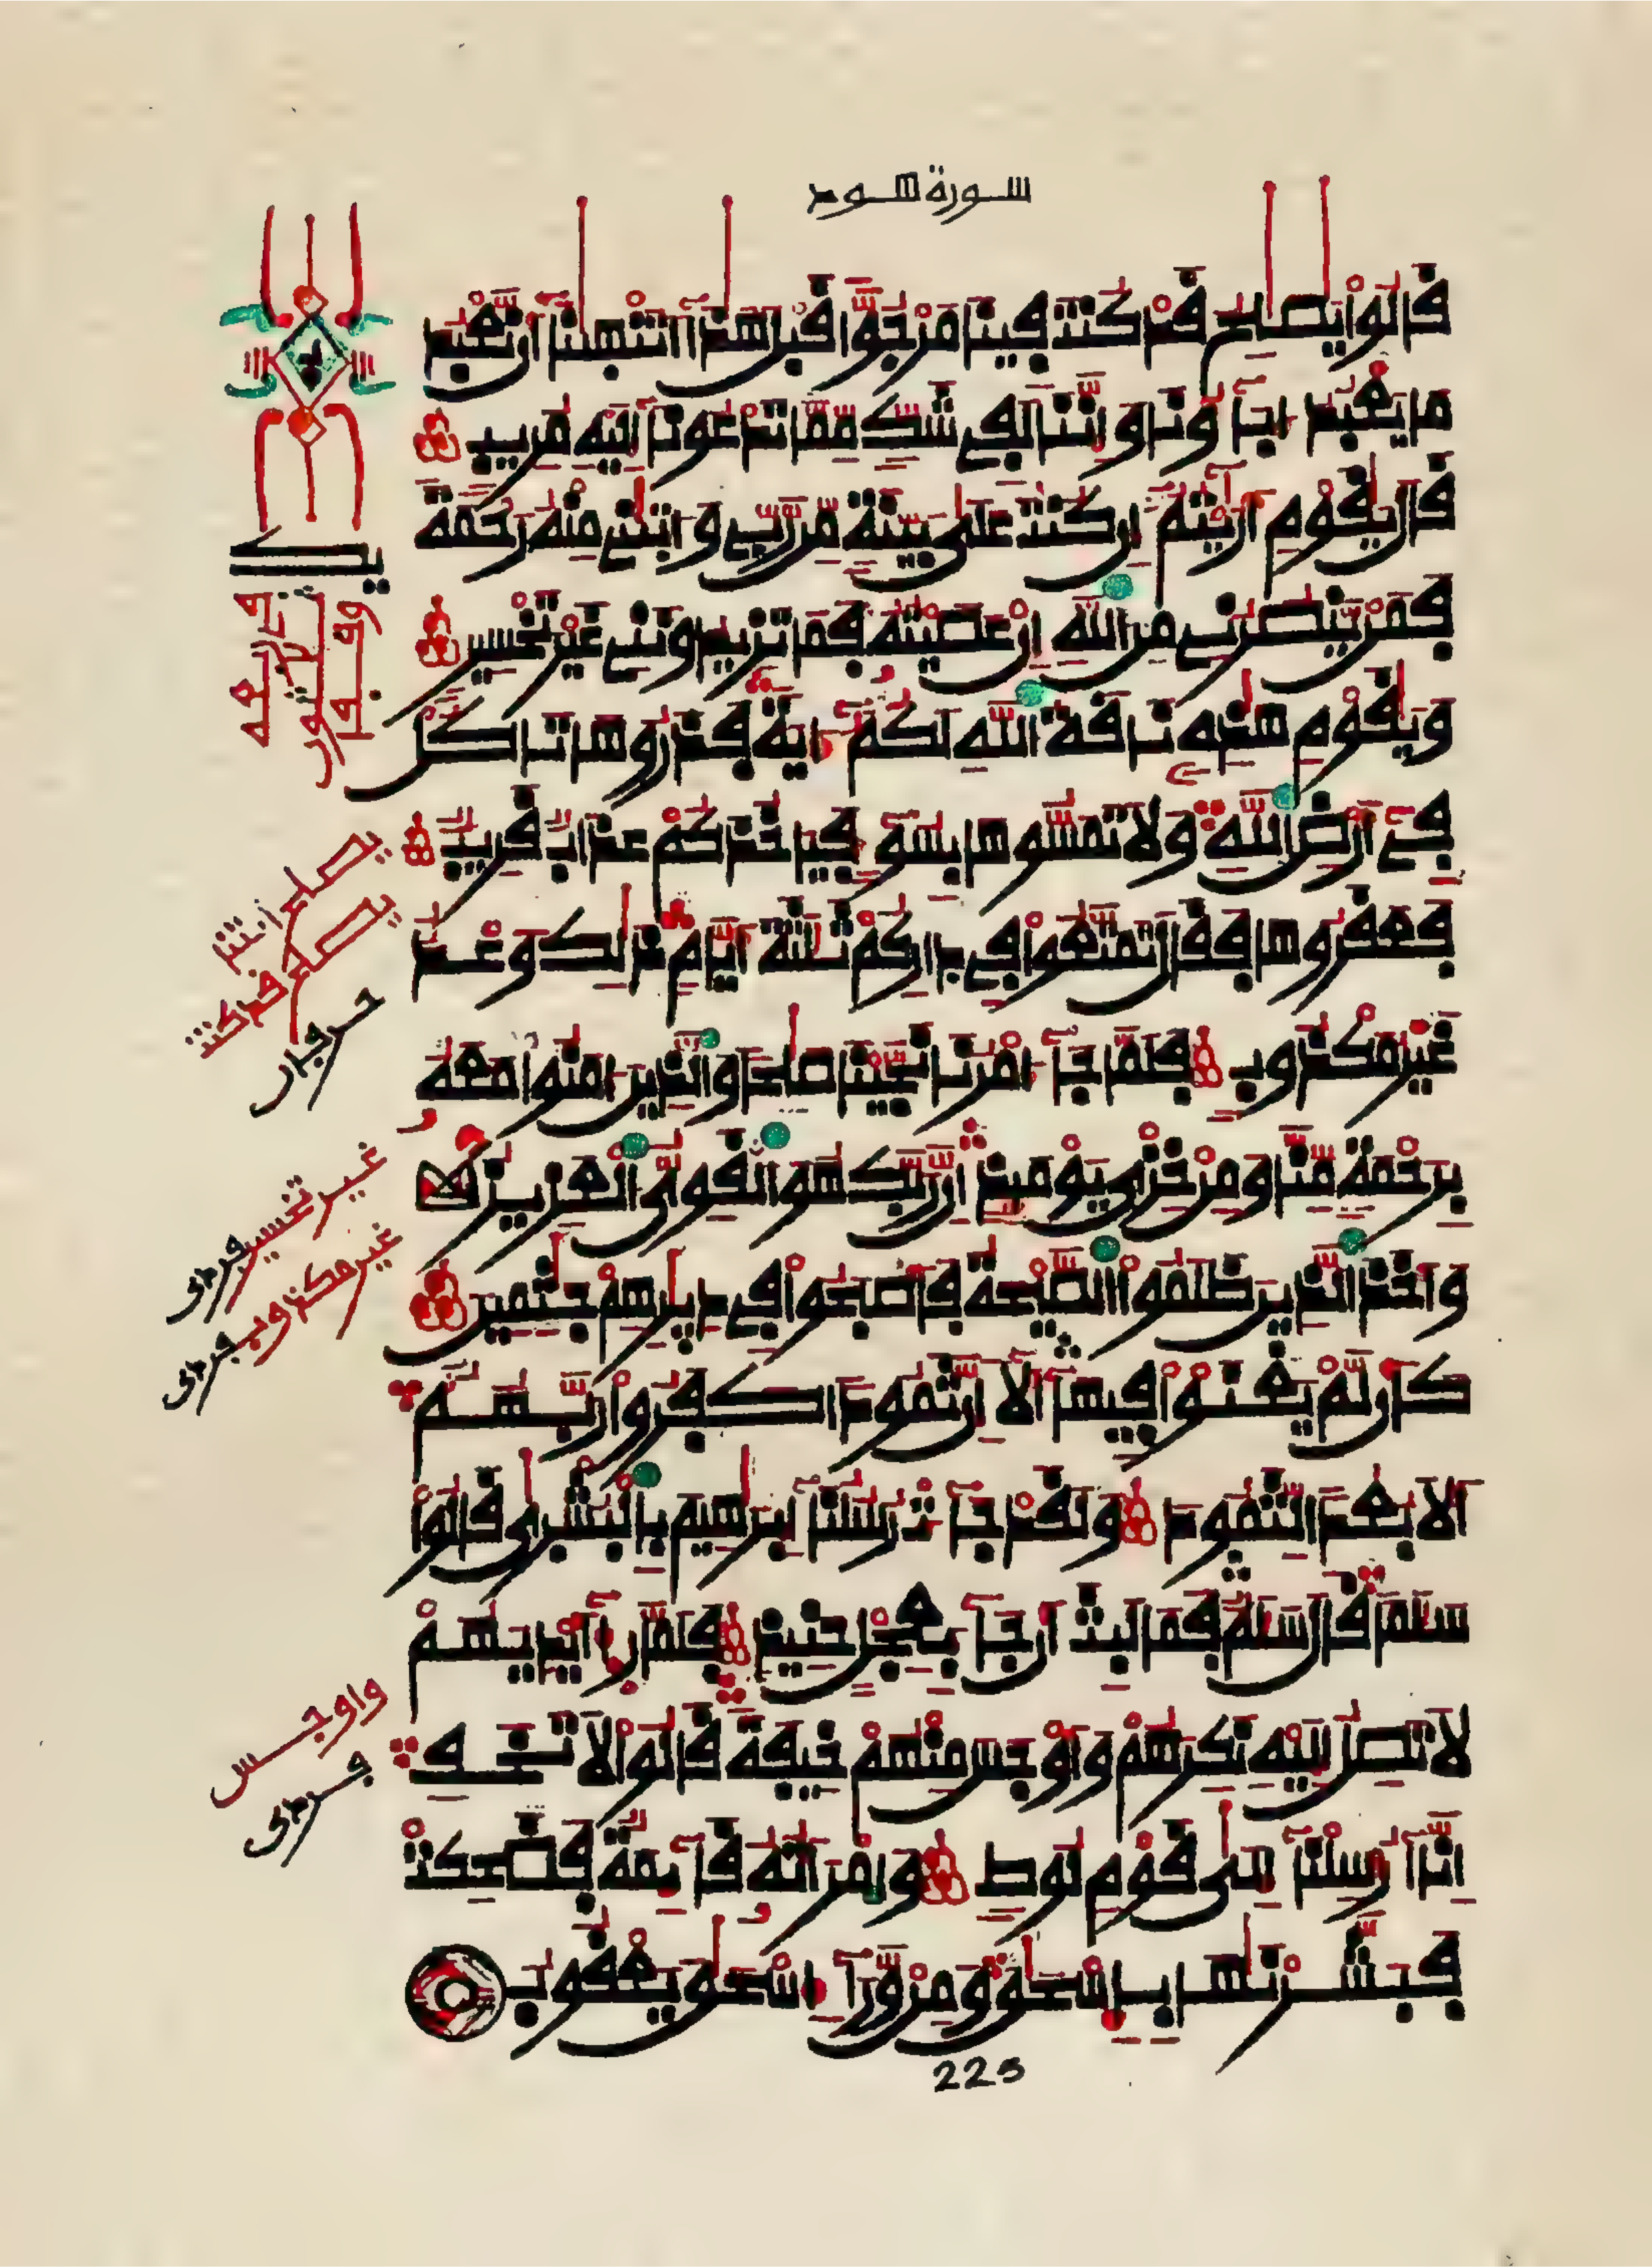 سورة هود
قالوا يصلح قد كنت فينا مرجوا قبل هذا اتنهينا ان نعبد
ما يعبد اباؤنا واننا لفي شك مما تدعونا اليه مريب
قال يقوم اريتم ان كنت على بينة من ربي واتيني منه رحمة
فمن ينصرني من الله ان عصيته فما تزيدونني غير تخسير
ويقوم هذه ناقة الله لكم اية فذروها تاكل
في ارض الله ولا تمسوها بسوء فياخذكم عذاب قريب
فعقروها فقال تمتعوا في داركم ثلثة ايام ذلك وعد
غير مكذوب فلما جاء امرنا نجينا صلحا والذين امنوا معه
برحمة منا ومن خزي يومئذ ان ربك هو القوي العزيز
واخذ الذين ظلموا الصيحة فاصبحوا في ديرهم جثمين
كان لم يغنوا فيها الا ان ثمودا كفروا ربهم
الا بعدا لثمود ولقد جاءت رسلنا ابرهيم بالبشرى قالوا
سلما قال سلم فما لبث ان جاء بعجل حنيذ فلما را ايديهم
لا تصل اليه نكرهم واوجس منهم خيفة قالوا لا تخف
انا ارسلنا الى قوم لوط وامراته قائمة فضحكت
فبشرنها باسحق ومن وراء اسحق يعقوب
يصلح ائتنا
يصلح قد كنت
غير تخسير
غير مكذوب
واوجس
225